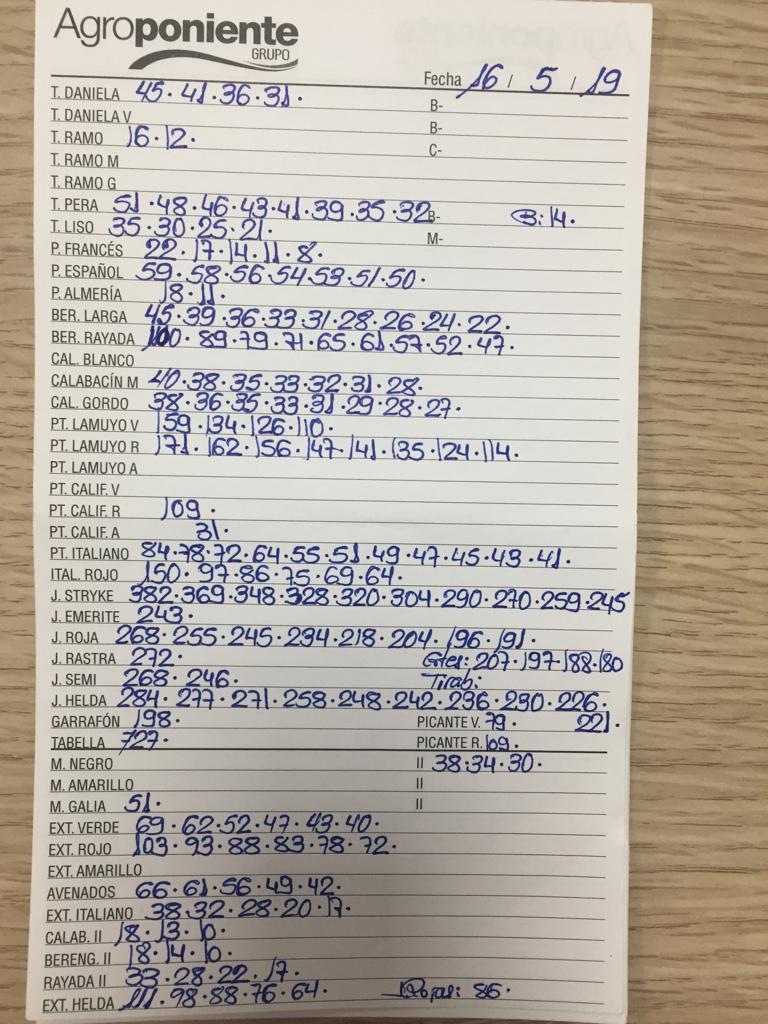 Agroponiente
GRUPO
Fecha 16 / 5 / 19
T. DANELA 45. 41. 36. 31. B-
T. DANIELA V B-
T. RAMO 16. 12. C-
T. RAMO M
T. RAMO G
T. PERA 51. 48. 46. 43. 41. 39. 35. 32 B- B: 14.
T. LISO 35. 30. 25. 21. M-
P. FRANCÉS 22. 17. 14. 11. 8.
P. ESPAÑOL 59. 58. 56. 54. 53. 51. 50.
P. ALMERÍA 18. 11.
BER. LARGA 45. 39. 36. 33. 31. 28. 26. 24. 22.
BER. RAYADA 100. 89. 79. 71. 65. 61. 57. 52. 47.
CAL. BLANCO
CALABACÍN M 40. 38. 35. 33. 32. 31. 28.
CAL. GORDO 38. 36. 35. 33. 31. 29. 28. 27.
PT. LAMUYO V 159. 134. 126. 110.
PT. LAMUYO R 171. 162. 156. 147. 141. 135. 124. 114.
PT. LAMUYO A
PT. CALIF. V
PT. CALIF. R 109.
PT. CALIF. A 31.
PT. ITALIANO 84. 78. 72. 64. 55. 51. 49. 47. 45. 43. 41.
ITAL. ROJO 150. 97. 86. 75. 69. 64.
J. STRYKE 382. 369. 348. 328. 320. 304. 290. 270. 259. 245
J. EMERITE 243.
J. ROJA 268. 255. 245. 234. 218. 204. 196. 191.
J. RASTRA 272. Gtes: 207. 197. 188. 180
J. SEMI 268. 246. Tirab:
J. HELDA 284. 277. 271. 258. 248. 242. 236. 230. 226.
GARRAFÓN 198. PICANTE V. 79. 221.
TABELLA 727. PICANTE R. 109.
M. NEGRO II 38. 34. 30.
M. AMARILLO II
M. GALIA 51. II
EXT. VERDE 69. 62. 52. 47. 43. 40.
EXT. ROJO 103. 93. 88. 83. 78. 72.
EXT. AMARILLO
AVENADOS 66. 61. 56. 49. 42.
EXT. ITALIANO 38. 32. 28. 20. 17.
CALAB. II 18. 13. 10.
BERENG. II 18. 14. 10.
RAYADA II 33. 28. 22. 17.
EXT. HELDA 111. 98. 88. 76. 64. Rojas: 86.